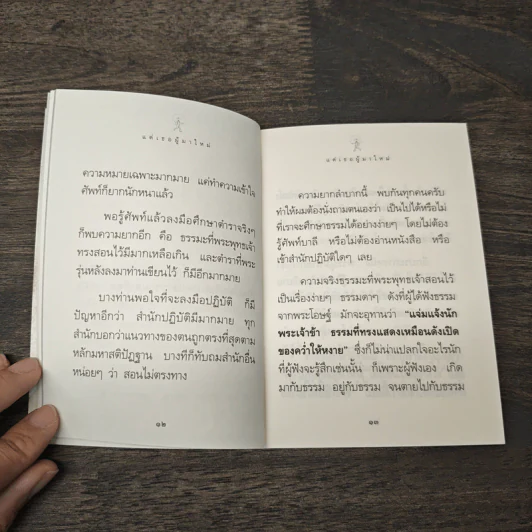 แด่เธอผู้มาใหม่
ความหมายเฉพาะมากมาย แค่ทำความเข้าใจ
ศัพท์ก็ยากนักหนาแล้ว
พอรู้ศัพท์แล้วลงมือศึกษาตำราจริงๆ
ก็พบความยากอีก คือ ธรรมะที่พระพุทธเจ้า
ทรงสอนไว้มีมากเหลือเกิน และตำราที่พระ
รุ่นหลังลงมาท่านเขียนไว้ ก็มีอีกมากมาย
บางท่านพอใจที่จะลงมือปฏิบัติ ก็มี
ปัญหาอีกว่า สำนักปฏิบัติมีมากมาย ทุก
สำนักบอกว่าแนวทางของตนถูกตรงที่สุดตาม
หลักมหาสติปัฏฐาน บางทีก็ทับถมสำนักอื่น
หน่อยๆ ว่า สอนไม่ตรงทาง
๑๒
แด่เธอผู้มาใหม่
ความยากลำบากนี้ พบกันทุกคนครับ
ทำให้ผมต้องนั่งถามตนเองว่า เป็นไปได้หรือไม่
ที่เราจะศึกษาธรรมได้อย่างง่ายๆ โดยไม่ต้อง
รู้ศัพท์บาลี หรือไม่ต้องอ่านหนังสือ หรือ
เข้าสำนักปฏิบัติใดๆ เลย
ความจริงธรรมะที่พระพุทธเจ้าสอนไว้
เป็นเรื่องง่ายๆ ธรรมดาๆ ดังที่ผู้ได้ฟังธรรม
จากพระโอษฐ์ มักจะอุทานว่า “แจ่มแจ้งนัก
พระเจ้าข้า ธรรมที่ทรงแสดงเหมือนดังเปิด
ของคว่ำให้หงาย” ซึ่งก็ไม่น่าแปลกใจอะไรนัก
ที่ผู้ฟังจะรู้สึกเช่นนั้น ก็เพราะผู้ฟังเอง เกิด
มากับธรรม อยู่กับธรรม จนตายไปกับธรรม
๑๓